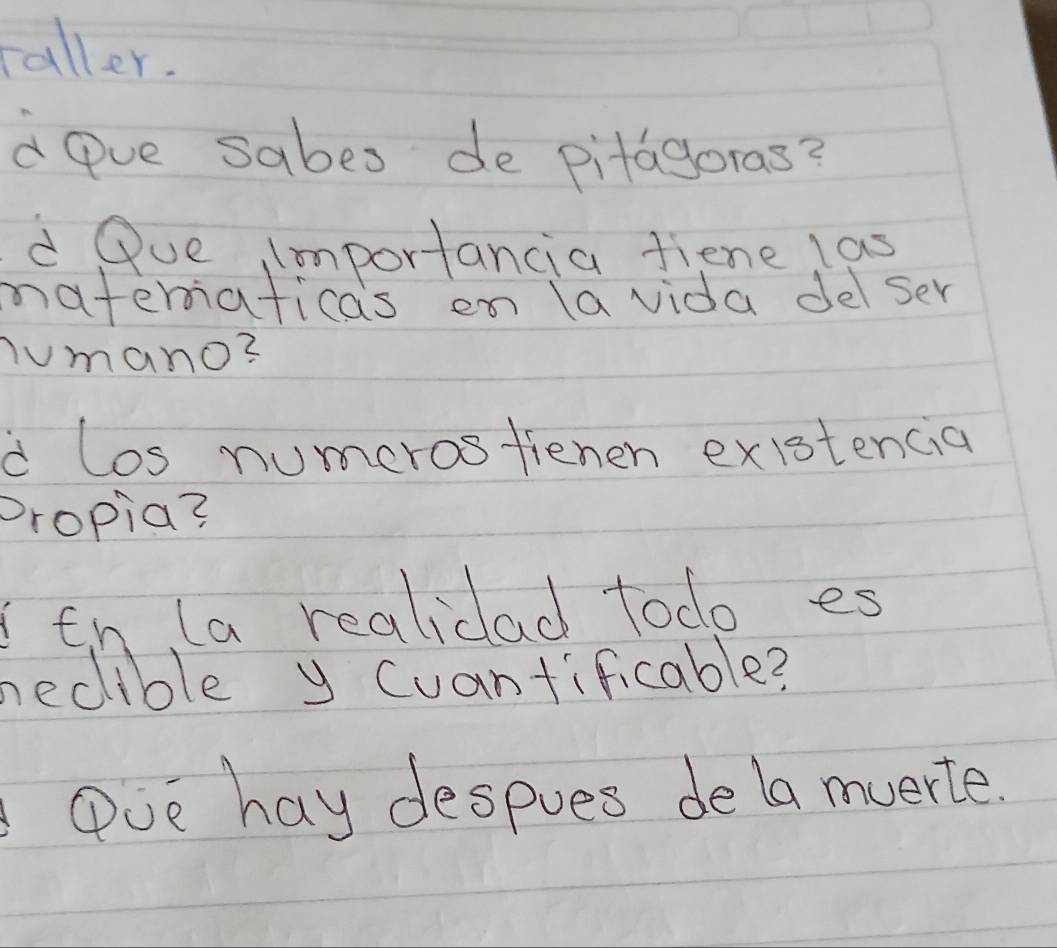 Taller.
¿Que sabes de pitágoras?
¿Que importancia tiene las
matematicas en la vida del ser
humano?
¿Los numeros tienen existencia
Propia?
¿En la realidad todo es
medible y cuantificable?
¿Qué hay despues de la muerte.